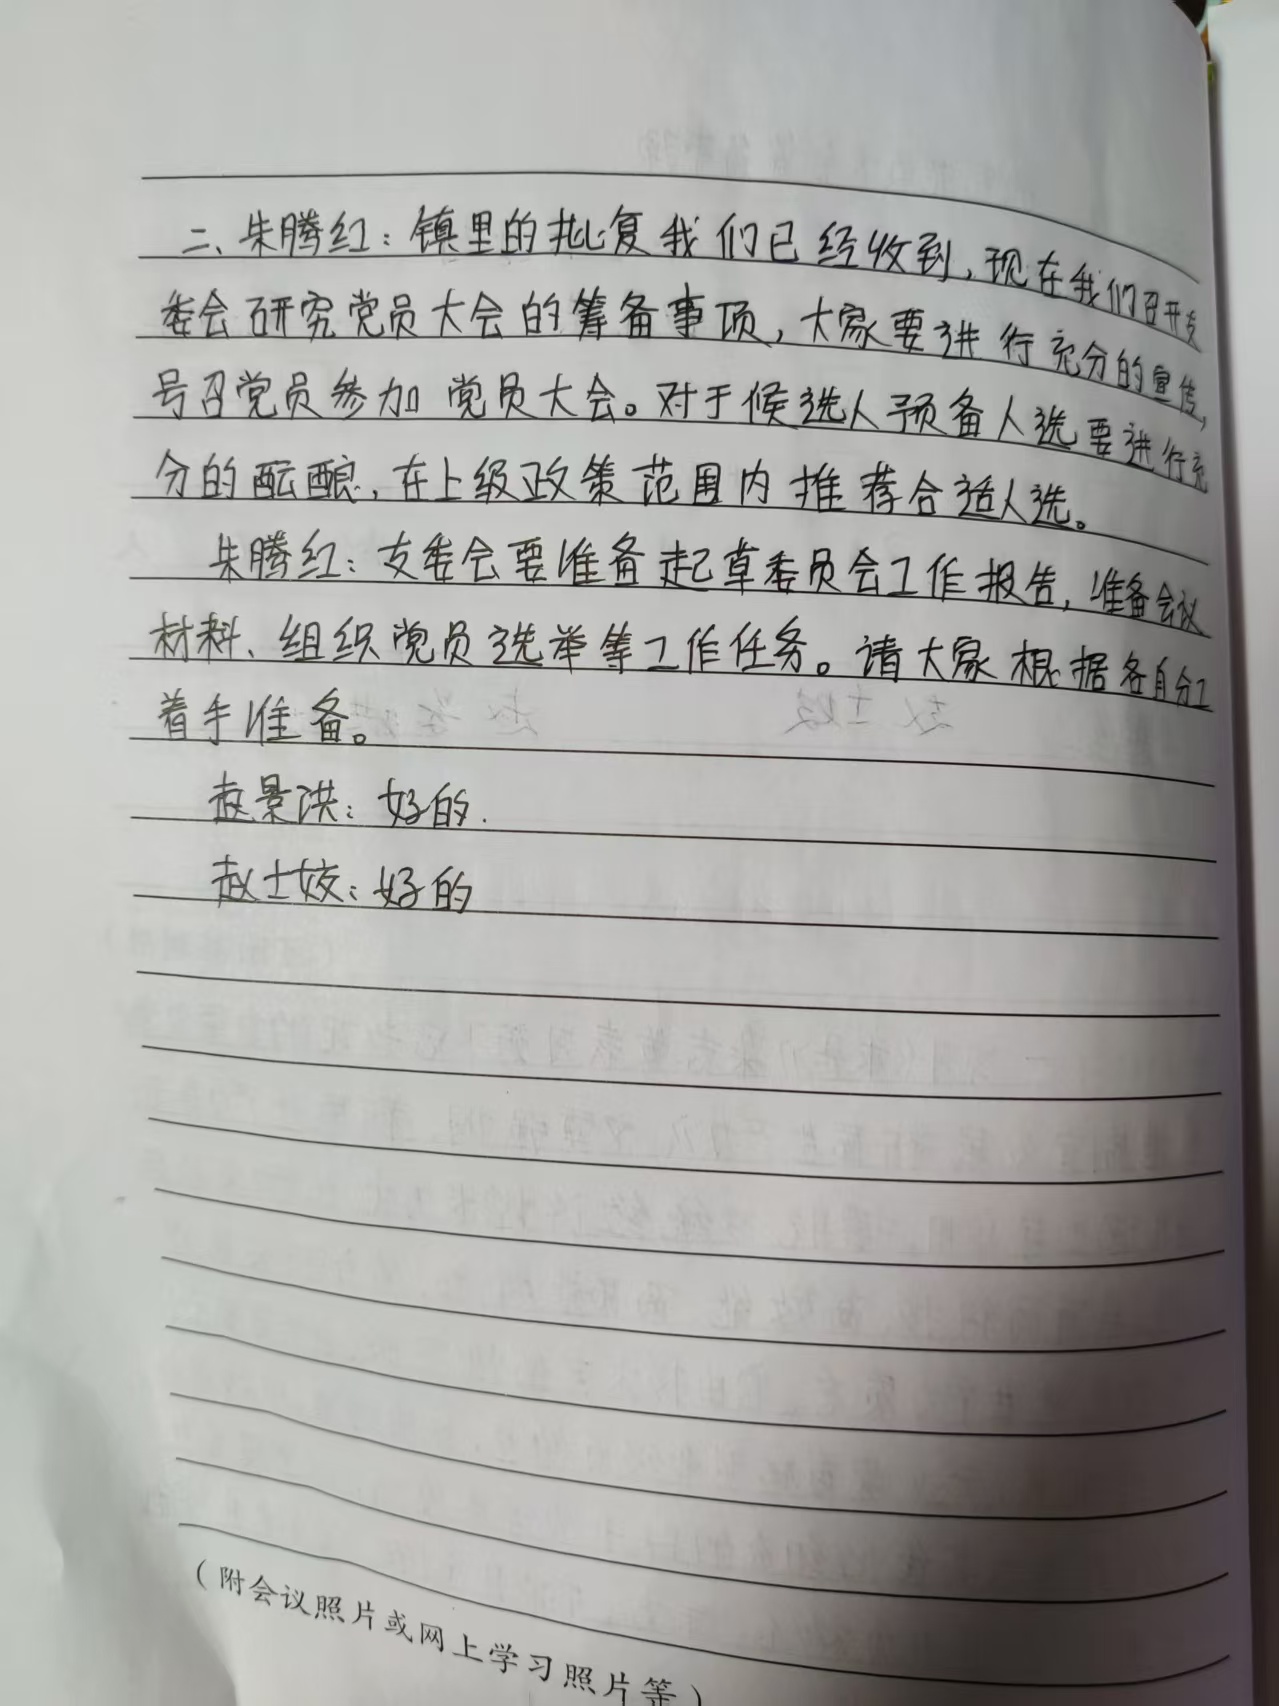 二、朱腾红：镇里的批复我们已经收到，现在我们召开支
委会研究党员大会的筹备事项，大家要进行充分的宣传，
号召党员参加党员大会。对于候选人预备人选要进行充
分的酝酿，在上级政策范围内推荐合适人选。
朱腾红：支委会要准备起草委员会工作报告，准备会议
材料、组织党员选举等工作任务。请大家根据各自分工
着手准备。
赵景洪：好的．
赵士姣：好的
（附会议照片或网上学习照片等）